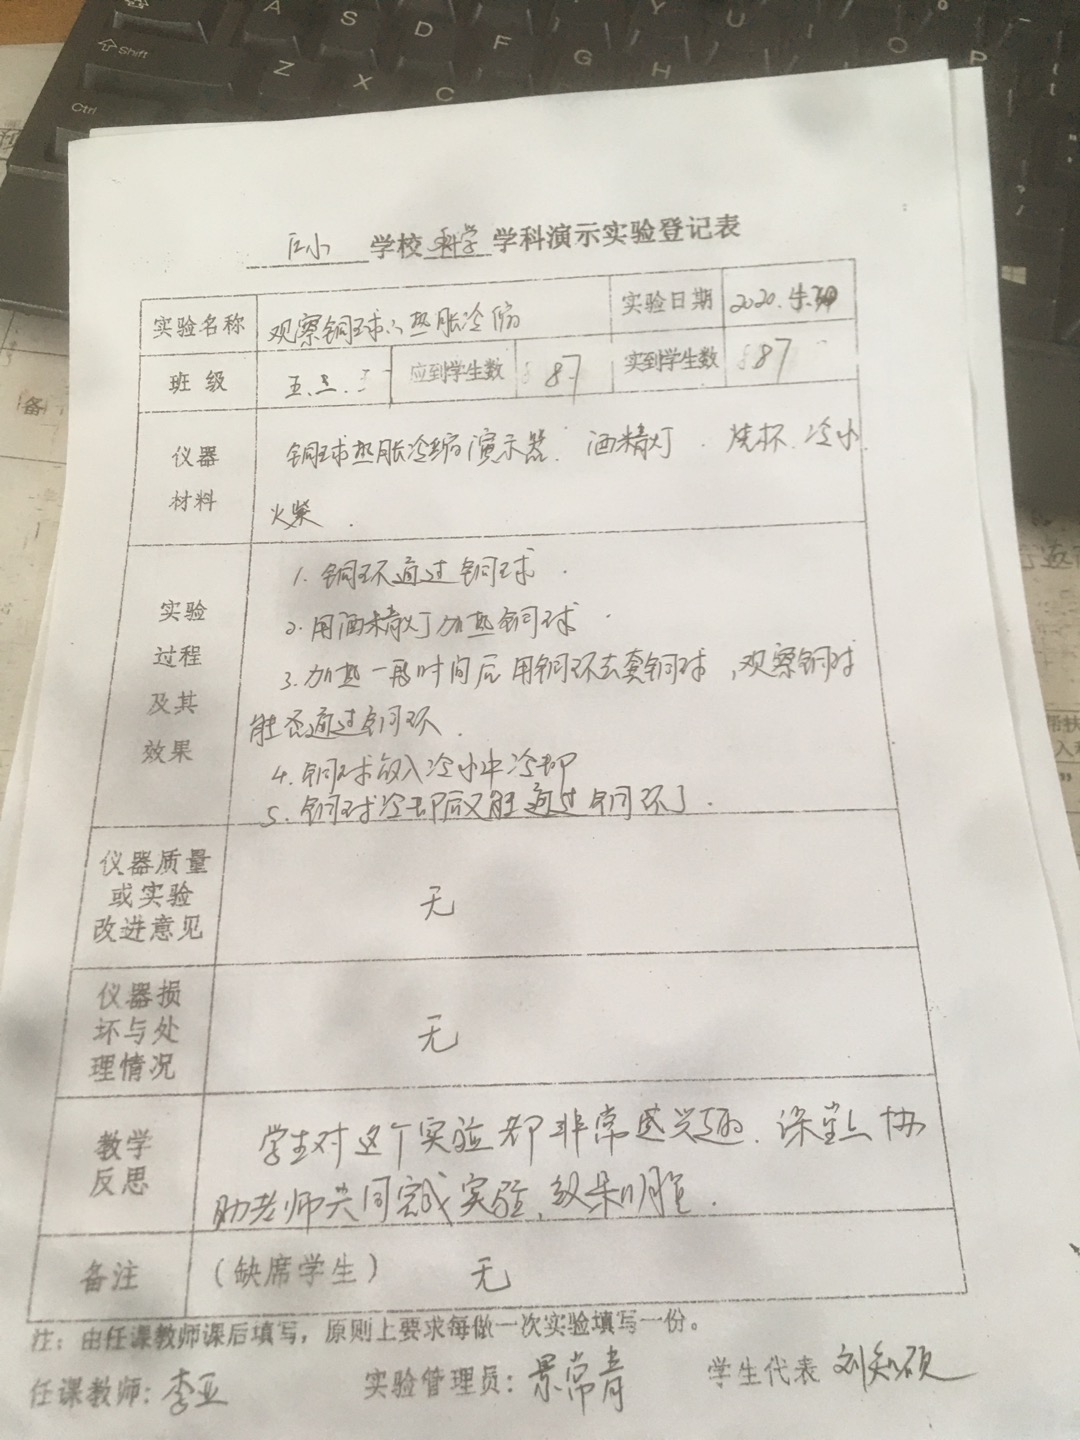 Shift
Ctrl
A S D F G H I O P
Z X C U
学校 科学 学科演示实验登记表
实验名称 观察铜球的热胀冷缩 实验日期 2020.
班级 五.三. 应到学生数 87 实到学生数 87
仪器材料
铜球热胀冷缩演示器. 酒精灯. 烧杯. 冷水.
火柴.
实验过程及其效果
1. 铜环通过铜球.
2. 用酒精灯加热铜球.
3. 加热一段时间后用铜环去套铜球,观察铜球
能否通过铜环.
4. 铜球放入冷水中冷却
5. 铜球冷却后又能通过铜环了.
仪器质量
或实验
改进意见
无
仪器损
坏与处
理情况
无
教学
反思
学生对这个实验都非常感兴趣. 课堂上协
助老师共同完成实验,效果明显.
备注 (缺席学生) 无
注:由任课教师课后填写,原则上要求每做一次实验填写一份。
任课教师:李亚 实验管理员:景常青 学生代表 刘知硕